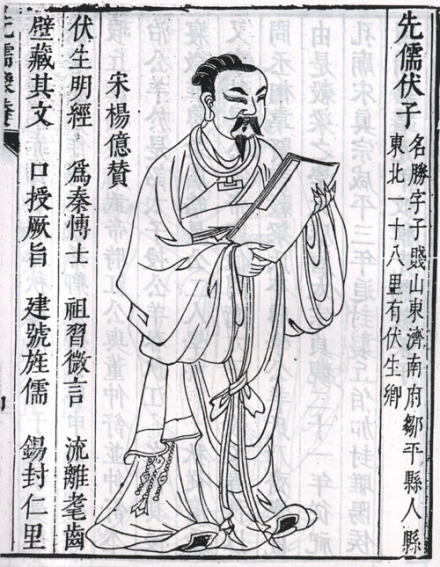 先儒伏子
名勝字子賤山東濟南府鄒平縣人縣
東北一十八里有伏生鄉
宋楊億贊
伏生明經 爲秦愽士 祖習微言 流離耄齒
壁藏其文 口授厥旨 建號旌儒 錫封仁里